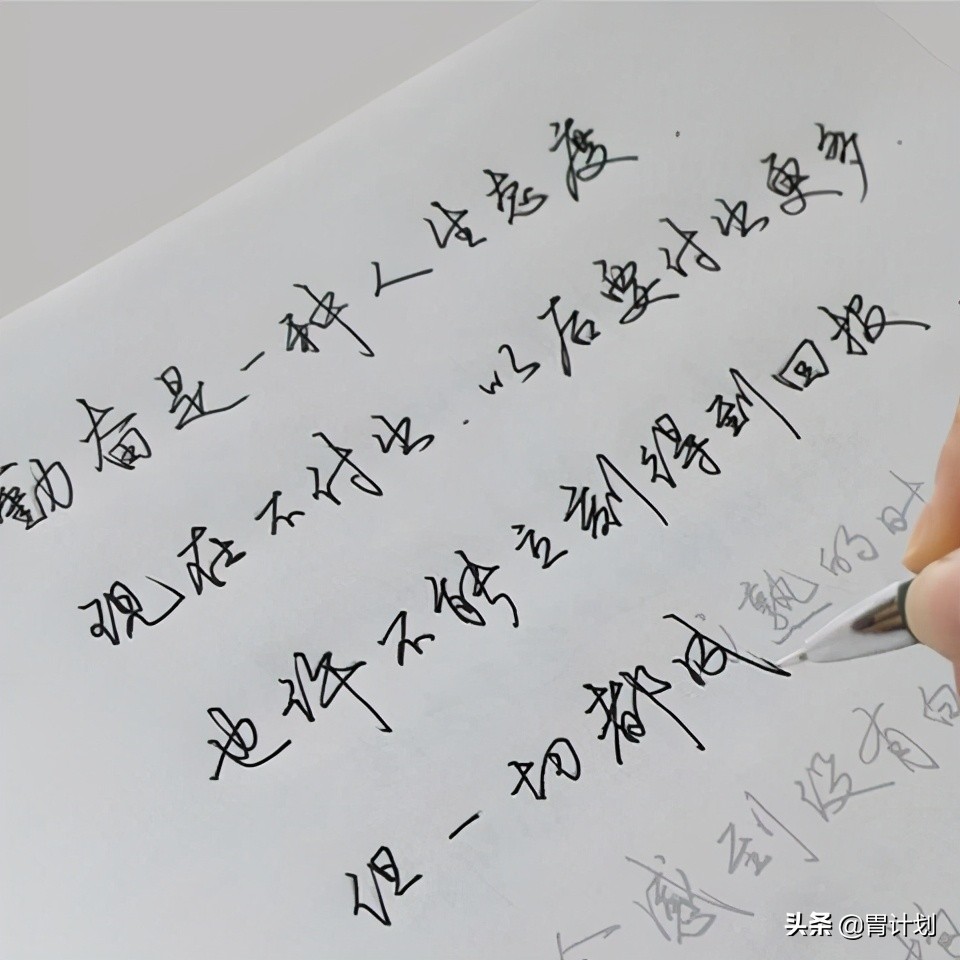 勤奋是一种人生态度
现在不付出.以后要付出更多
也许不能立刻得到回报
但一切都成熟的时
感到没有白
头条 @胃计划